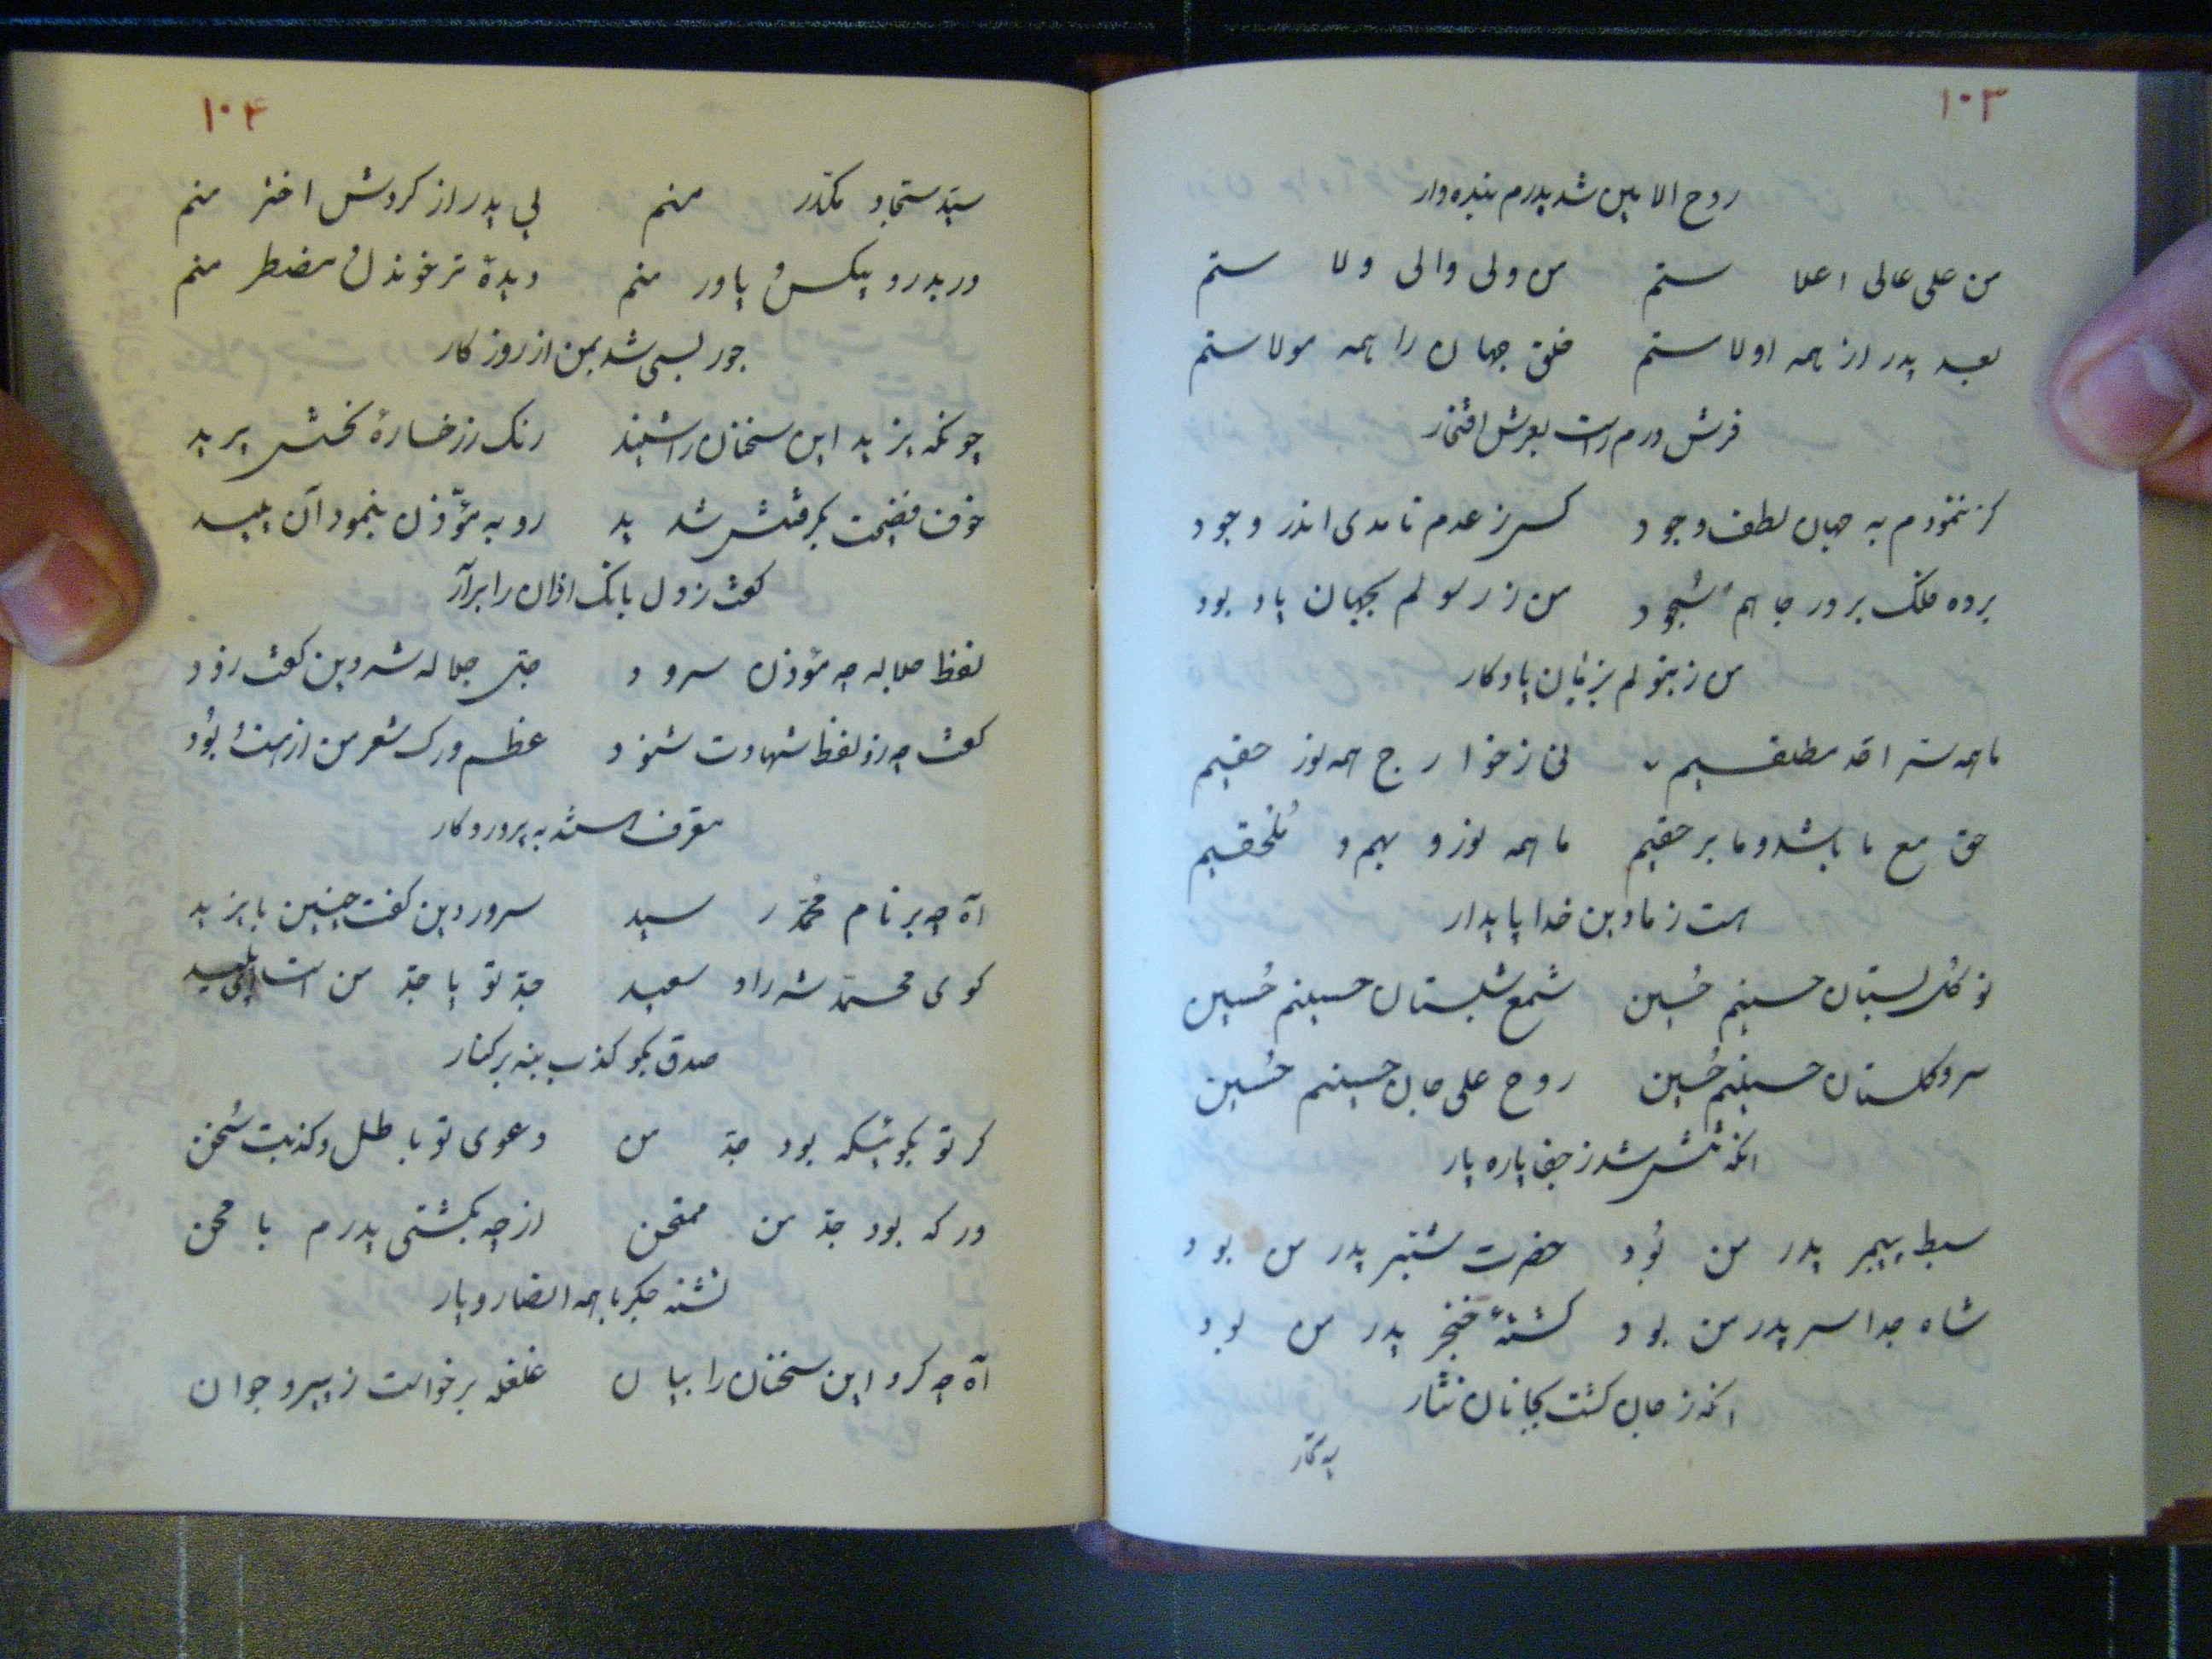 ۱۰۳
روح الامین شد پدرم بنده وار
من علی عالی اعلا ستم من ولی والی ولا ستم
بعد پدر از همه اولاستم خلق جهان را همه مولاستم
فرش درم راست بعرش افتخار
کر ننمودم به جهان لطف وجود کس ز عدم نامدی اندر وجود
برده ملک بر در جاهم سجود من ز رسولم بجهان یاد بود
من ز بتولم بزمان یادکار
ما همه سر افد مطلقیم نی ز خوارج همه نور حقیم
حق مع ما باشد و ما بر حقیم ما همه نور و بهم و ملحقیم
هست ز ما دین خدا پایدار
نو کل بستان حسینم حسین شمع شبستان حسینم حسین
سرو کلستان حسینم حسین روح علی جان حسینم حسین
انکه تنش شد ز جفا پاره پار
سبط پیمبر پدر من بود حضرت شبیر پدر من بود
شاه جدا سر پدر من بود کشتهٔ خنجر پدر من بود
انکه ز جان کشت بجانان نثار
۱۰۴
سید سجاد مکدر منم بی پدر از کردش اختر منم
دربدر و بیکس و یاور منم دیدهٔ تر خوندل مضطر منم
جور بسی شد بمن از روزکار
چونکه یزید این سخنان را شنید رنک ز رخسارهٔ نحسش پرید
خوف فضیحت بکرفتش شدید رو به مؤذن بنمود آن پلید
کفت ز دل بانک اذان را برآر
لفظ جلاله چه مؤذن سرود جل جلاله شه دین کفت زود
کفت چه زو لفظ شهادت شنود عظم و رک شعر من از هست بود
معرف هستند به پروردکار
آه چه بر نام محمد رسید سرور دین کفت چنین با یزید
کوی محمد شه راد سعید جد تو یا جد من است ای پلید
صدق بکو کذب بنه بر کنار
کر تو بکوئیکه بود جد من دعوی تو باطل و کذبت سخن
ور که بود جد من ممتحن از چه بکشتی پدرم با محن
تشنه جکر با همه انصار و یار
آه چه کرد این سخنان را بیان غلغله برخواست ز پیر و جوان